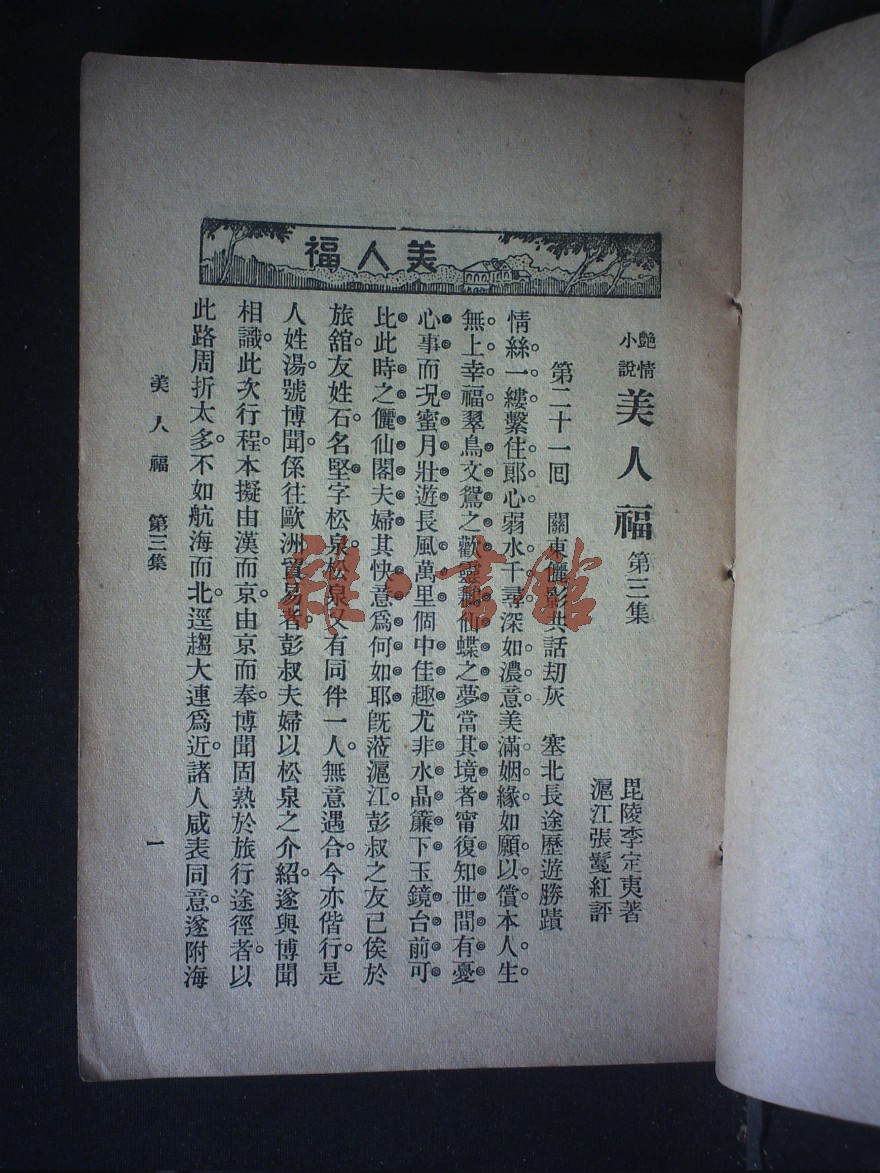 美人福
艷情小說 美人福 第三集
毘陵李定夷著
滬江張蟄紅評
第二十一回 關東儷影共話刧灰 塞北長途歷遊勝蹟
情絲一縷繫住郎心弱水千尋深如濃意美滿姻緣如願以償本人生
無上幸福翠鳥文鴛之歡靈鶼仙蝶之夢當其境者甯復知世間有憂
心事而况蜜月壯遊長風萬里個中佳趣尤非水晶簾下玉鏡台前可
比此時之儷仙閣夫婦其快意爲何如耶旣蒞滬江彭叔之友已俟於
旅舘友姓石名堅字松泉松泉又有同伴一人無意遇合今亦偕行是
人姓湯號博聞係往歐洲貿易者彭叔夫婦以松泉之介紹遂與博聞
相識此次行程本擬由漢而京由京而奉博聞固熟於旅行途徑者以
此路周折太多不如航海而北逕趨大連爲近諸人咸表同意遂附海
美人福 第三集
一
雜·書館